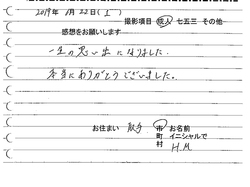 2019年 1月 22日(土)
撮影項目 成人 七五三 その他
感想をお願いします
一生の思い出になりました.
本当にありがとうございました。
お住まい 取手 市 町 村
お名前 イニシャルで
H.M